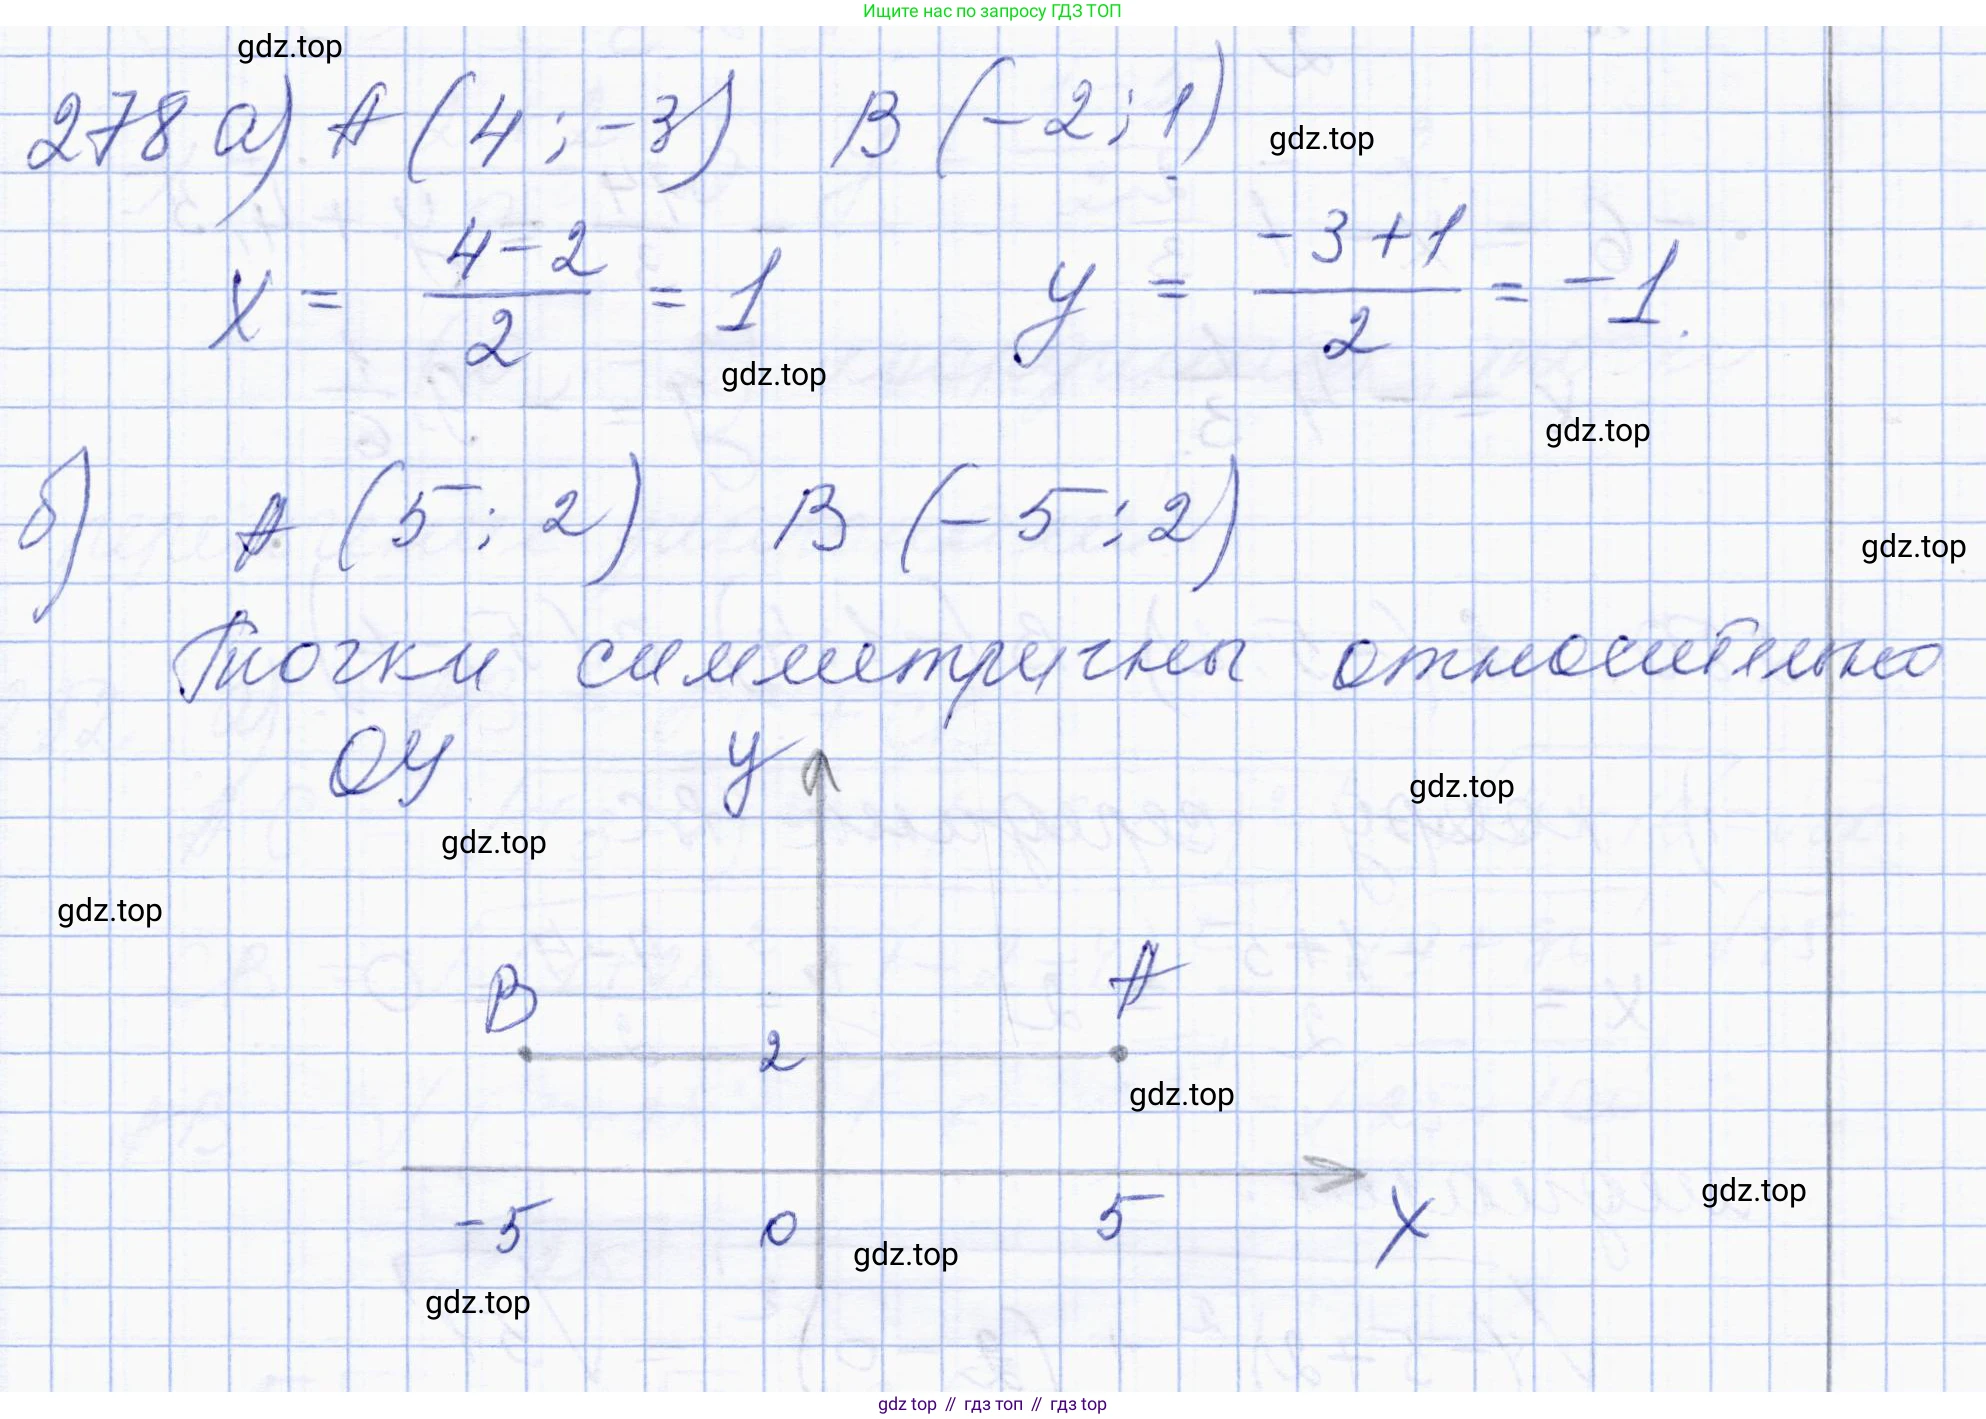 Ищите нас по запросу ГДЗ ТОП
gdz.top
278 а) A (4 ; -3) B (-2 ; 1)
gdz.top
x = \frac{4-2}{2} = 1 y = \frac{-3+1}{2} = -1.
gdz.top
gdz.top
б) A (5 ; 2) B (-5 ; 2)
gdz.top
Точки симметричны относительно
ОУ y
gdz.top
gdz.top
gdz.top
B A
2
gdz.top
gdz.top
-5 0 5 x
gdz.top
gdz.top
gdz.top // гдз топ // гдз top